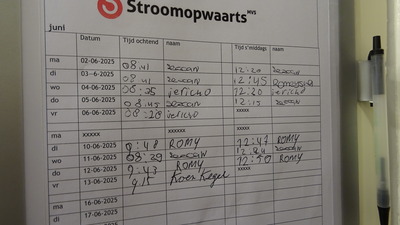 Stroomopwaarts MVS
juni
Datum Tijd ochtend naam Tijd s'middags naam
ma 02-06-2025 08:41 12:20
di 03-6-2025 08:41 12:45
wo 04-06-2025 08:35 jericho 12:20 jericho
do 05-06-2025 08:45 12:15
vr 06-06-2025 08:28 jericho xxxxx
ma xxxxx xxxxxx xxxxx
di 10-06-2025 9:48 ROMY 12:47 ROMY
wo 11-06-2025 08:39
do 12-06-2025 9:43 ROMY 12:50 ROMY
vr 13-06-2025 915 Koen Kegel
ma 16-06-2025
di 17-06-2025